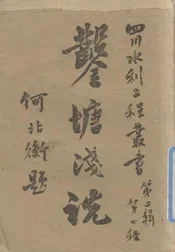 四川水利工程叢書
第二輯
第四種
鑿塘淺說
何北衡題